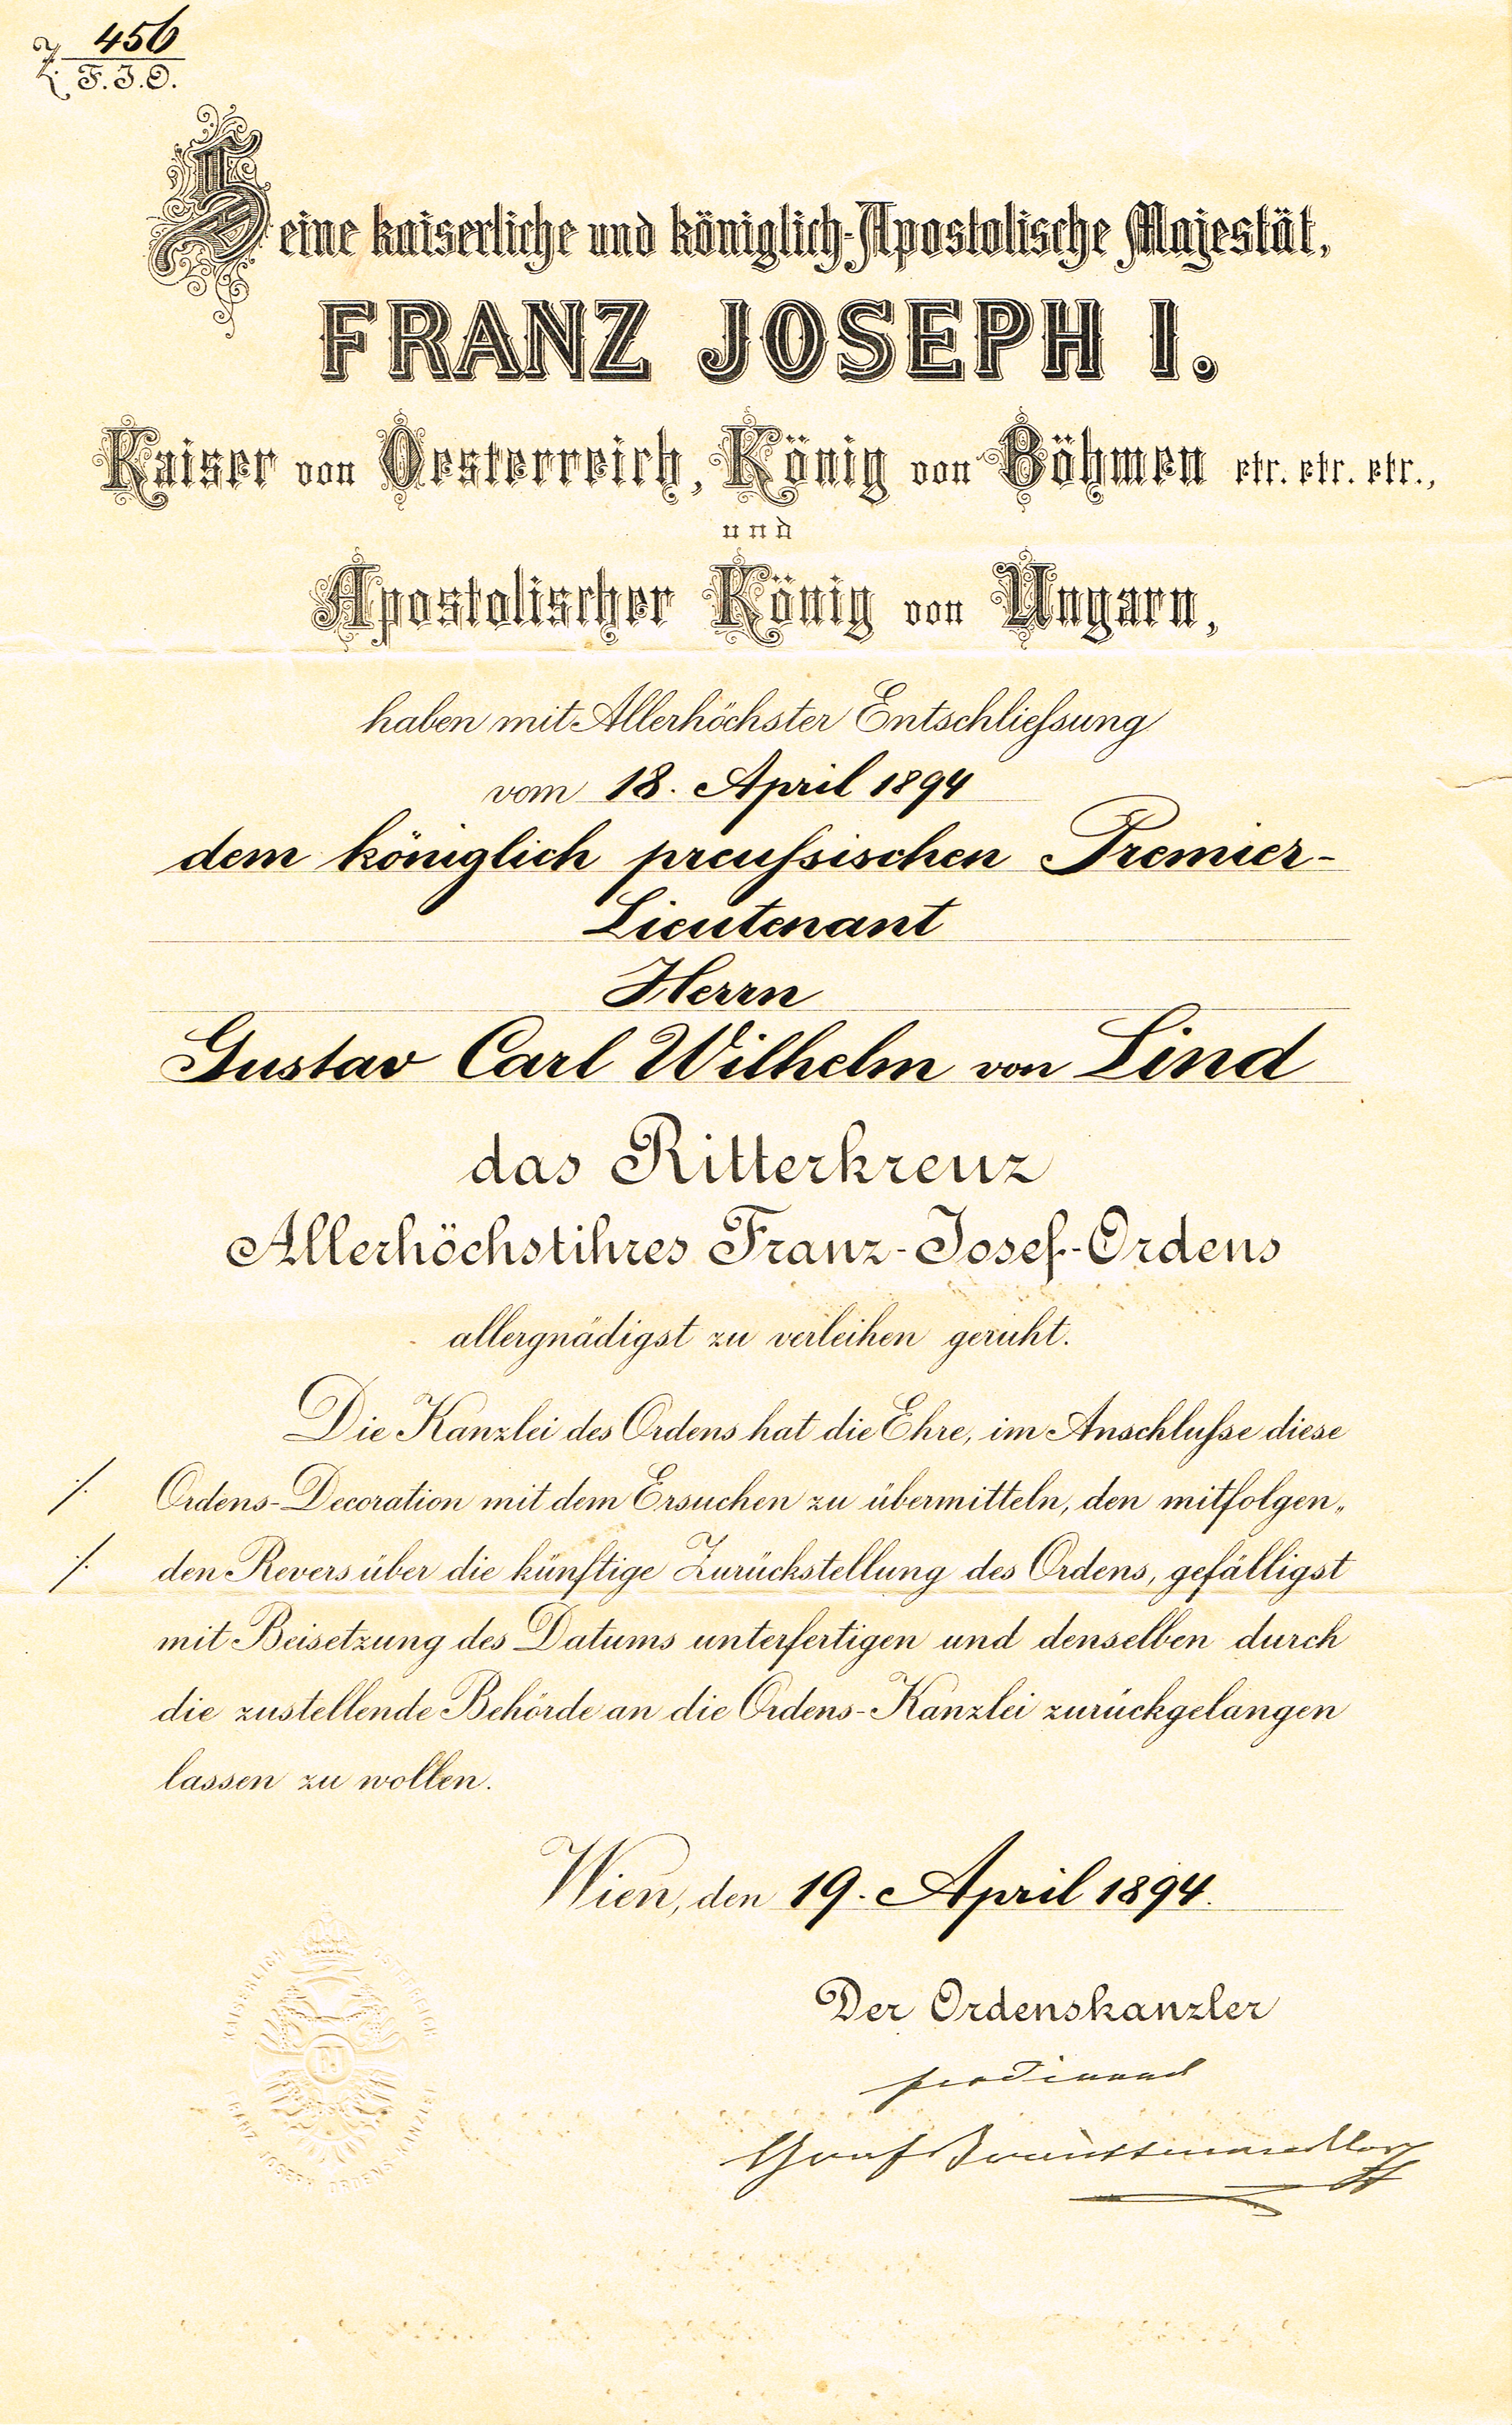 Z. 456
F.J.O.
Seine kaiserliche und königlich-Apostolische Majestät,
FRANZ JOSEPH I.
Kaiser von Oesterreich, König von Böhmen etc. etc. etc.,
und
Apostolischer König von Ungarn,
haben mit Allerhöchster Entschließung
vom 18. April 1894
dem königlich preußischen Premier-
Lieutenant
Herrn
Gustav Carl Wilhelm von Lind
das Ritterkreuz
Allerhöchstihres Franz-Josef-Ordens
allergnädigst zu verleihen geruht.
Die Kanzlei des Ordens hat die Ehre, im Anschluße diese
./. Ordens-Decoration mit dem Ersuchen zu übermitteln, den mitfolgen„
./. den Revers über die künftige Zurückstellung des Ordens, gefälligst
mit Beisetzung des Datums unterfertigen und denselben durch
die zustellende Behörde an die Ordens-Kanzlei zurückgelangen
lassen zu wollen.
Wien, den 19. April 1894.
KAISERLICH ÖSTERREICH
FRANZ JOSEPH ORDENS KANZLEI
Der Ordenskanzler
Ferdinand
Graf Trauttmansdorff